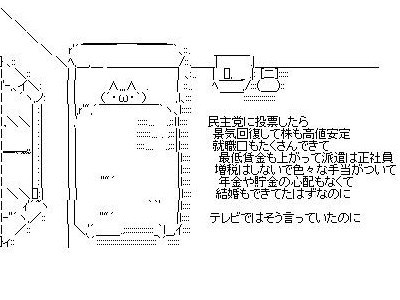 民主党に投票したら
景気回復して株も高値安定
就職口もたくさんできて
最低賃金も上がって派遣は正社員
増税はしないで色々な手当がついて
年金や貯金の心配もなくて
結婚もできてたはずなのに
テレビではそう言っていたのに